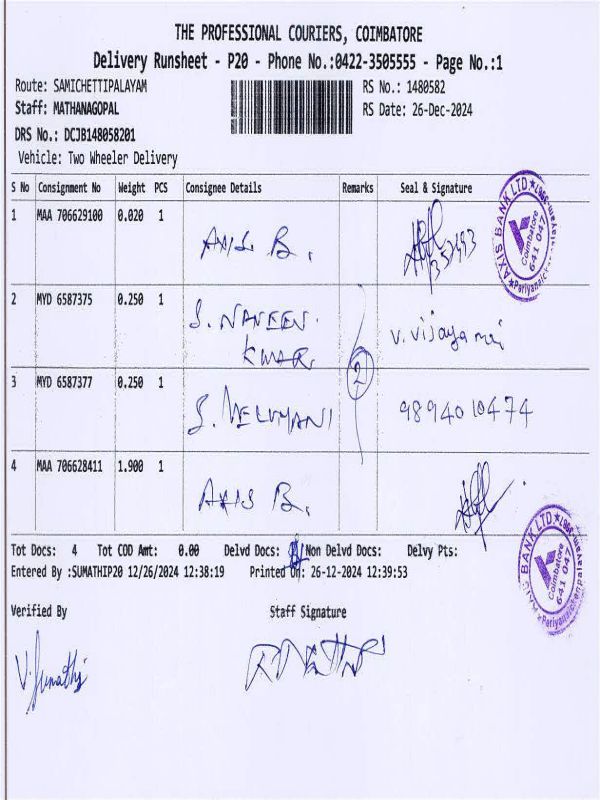 THE PROFESSIONAL COURIERS, COIMBATORE
Delivery Runsheet - P20 - Phone No.:0422-3505555 - Page No.:1
Route: SAMICHETTIPALAYAM RS No.: 1480582
Staff: MATHANAGOPAL RS Date: 26-Dec-2024
DRS No.: DCJB148058201
Vehicle: Two Wheeler Delivery
S No Consignment No Weight PCS Consignee Details Remarks Seal & Signature
1 MAA 706629100 0.020 1 AXIS B.
AXIS BANK LTD Coimbatore 641 047
2 MYD 6587375 0.250 1 S. NAVEEN V. Vijayamani
KUMAR
2
3 MYD 6587377 0.250 1 S. VELUMANI 9894010474
4 MAA 706628411 1.900 1 AXIS B.
Tot Docs: 4 Tot COD Amt: 0.00 Delvd Docs: Non Delvd Docs: Delvy Pts:
Entered By :SUMATHIP20 12/26/2024 12:38:19 Printed On: 26-12-2024 12:39:53
AXIS BANK LTD Coimbatore 641 047
Verified By Staff Signature
V. Sumathi